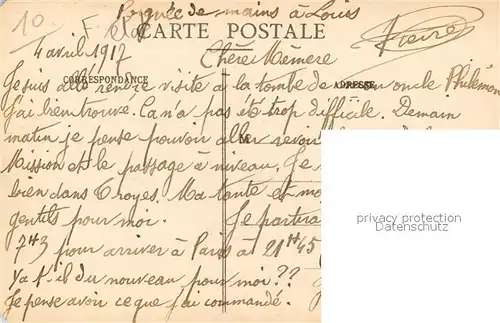 10. F
Poignée de mains à Louis
CARTE POSTALE
Pierre
4 avril 1917
Chère Mémère
CORRESPONDANCE
ADRESSE
Je suis allé rendre visite à la tombe de mon oncle Philémon
J'ai bien trouvé. Ca n'a pas été trop difficile. Demain
matin je pense pouvoir aller revoir
Mission et le passage à niveau. Je
bien dans Troyes. Ma tante et
gentils pour moi. Je partirai
7H3 pour arriver à Paris à 21H45
Ya t-il du nouveau pour moi ??
Je pense avoir ce que j'ai commandé.
privacy protection
Datenschutz